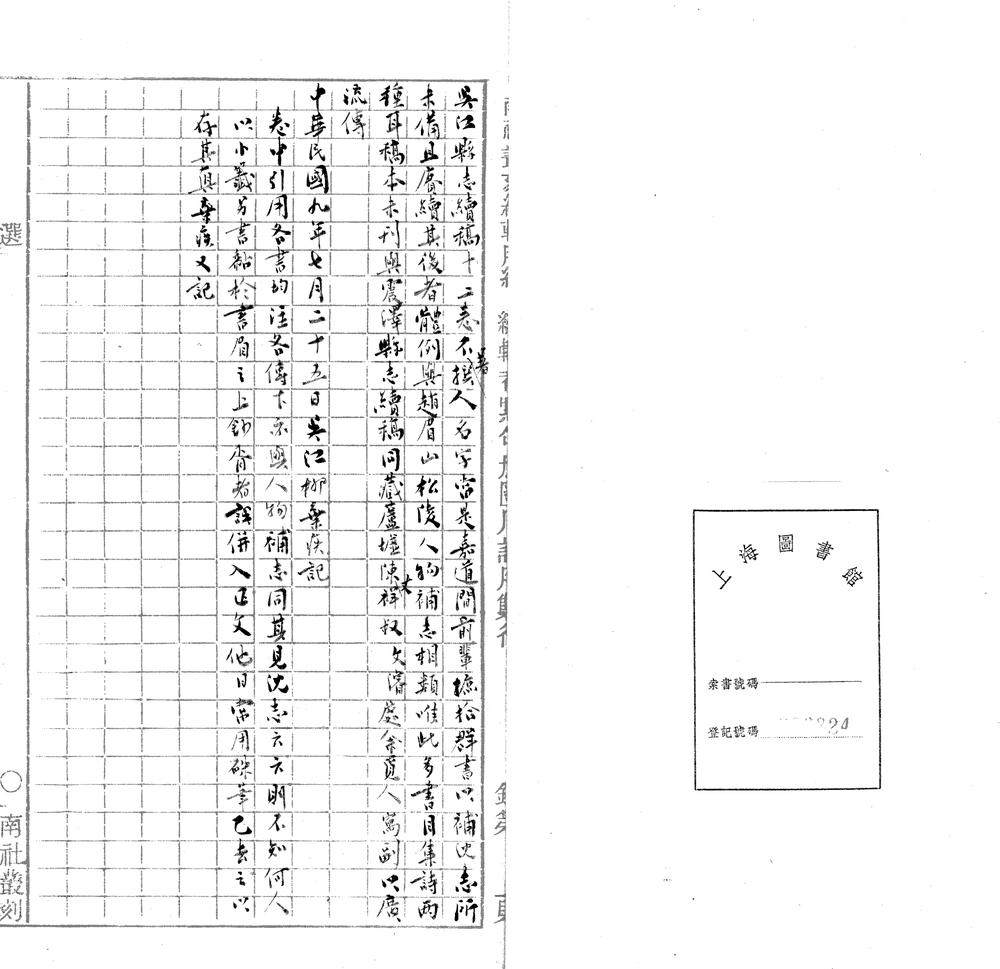 上海圖書館
索書號碼
登記號碼 24
吳江縣志續稿十二卷不著撰人名字當是嘉道間前輩摭拾群書以補沈志所
未備且賡續其後者體例與趙眉山松陵人物補志相類唯此多書目集詩兩
種耳稿本未刊與震澤縣志續稿同藏蘆墟陳祥叔丈濬處余覓人寫副以廣
流傳
中華民國九年七月二十五日吳江柳棄疾記
卷中引用各書均注各傳下亦與人物補志同其見沈志云云明不知何人
以小籤另書黏於書眉之上鈔胥者誤併入正文他日當用硃筆乙去之以
存其真棄疾又記
選
○南社叢刻